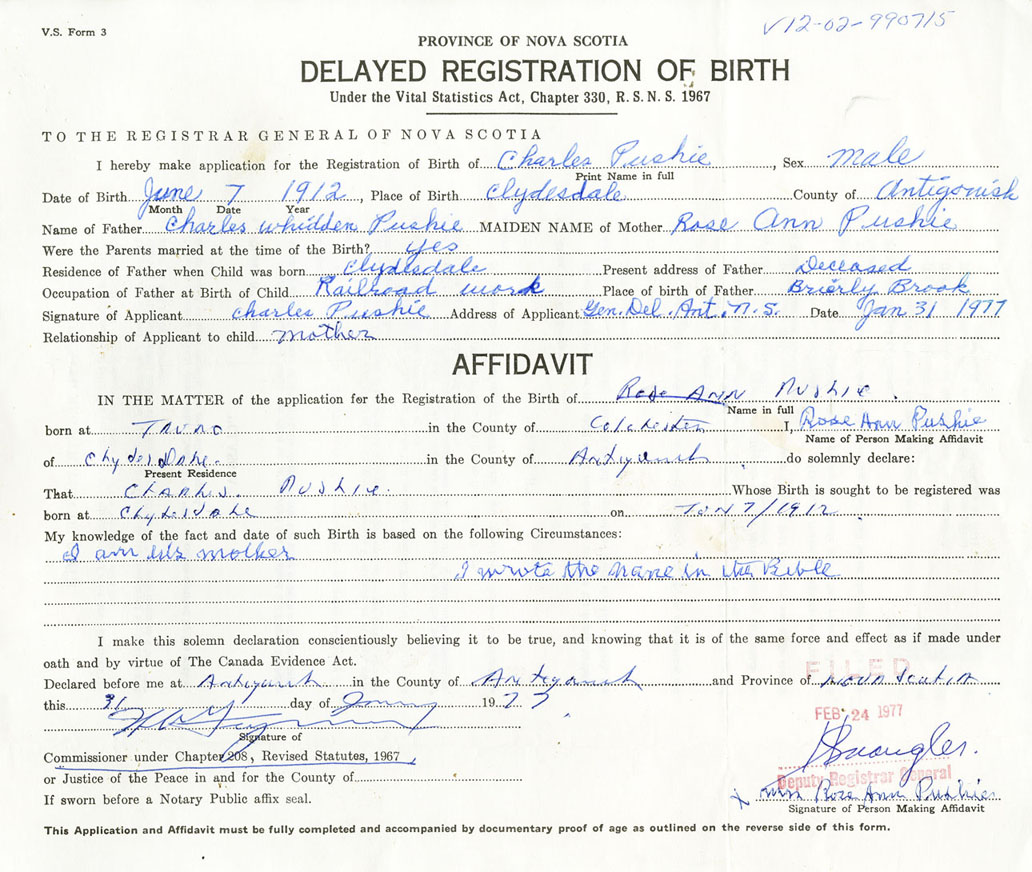 V.S. Form 3
V12-02-990715
PROVINCE OF NOVA SCOTIA
DELAYED REGISTRATION OF BIRTH
Under the Vital Statistics Act, Chapter 330, R.S.N.S. 1967
TO THE REGISTRAR GENERAL OF NOVA SCOTIA
I hereby make application for the Registration of Birth of Charles Pushie, Sex Male
Print Name in full
Date of Birth June 7 1912, Place of Birth Clydesdale County of Antigonish
Month Date Year
Name of Father Charles Whidden Pushie MAIDEN NAME of Mother Rose Ann Pushie
Were the Parents married at the time of the Birth? yes
Residence of Father when Child was born Clydesdale Present address of Father Deceased
Occupation of Father at Birth of Child Railroad work Place of birth of Father Brierly Brook
Signature of Applicant Charles Pushie Address of Applicant Gen. Del. Ant. N.S. Date Jan 31 1977
Relationship of Applicant to child mother
AFFIDAVIT
IN THE MATTER of the application for the Registration of the Birth of Rose Ann Pushie.
Name in full
born at Truro in the County of Colchester I, Rose Ann Pushie
Name of Person Making Affidavit
of Clydesdale. in the County of Antigonish, do solemnly declare:
Present Residence
That Charles Pushie. Whose Birth is sought to be registered was
born at Clydesdale on Jun 7/1912.
My knowledge of the fact and date of such Birth is based on the following Circumstances:
I am his mother
I wrote the name in the Bible
I make this solemn declaration conscientiously believing it to be true, and knowing that it is of the same force and effect as if made under
oath and by virtue of The Canada Evidence Act.
FILED
Declared before me at Antigonish in the County of Antigonish and Province of Nova Scotia
this 31 day of January 1977
FEB 24 1977
Signature of
Commissioner under Chapter 208, Revised Statutes, 1967
or Justice of the Peace in and for the County of
Deputy Registrar General
x Mrs Rose Ann Pushie
If sworn before a Notary Public affix seal.
Signature of Person Making Affidavit
This Application and Affidavit must be fully completed and accompanied by documentary proof of age as outlined on the reverse side of this form.